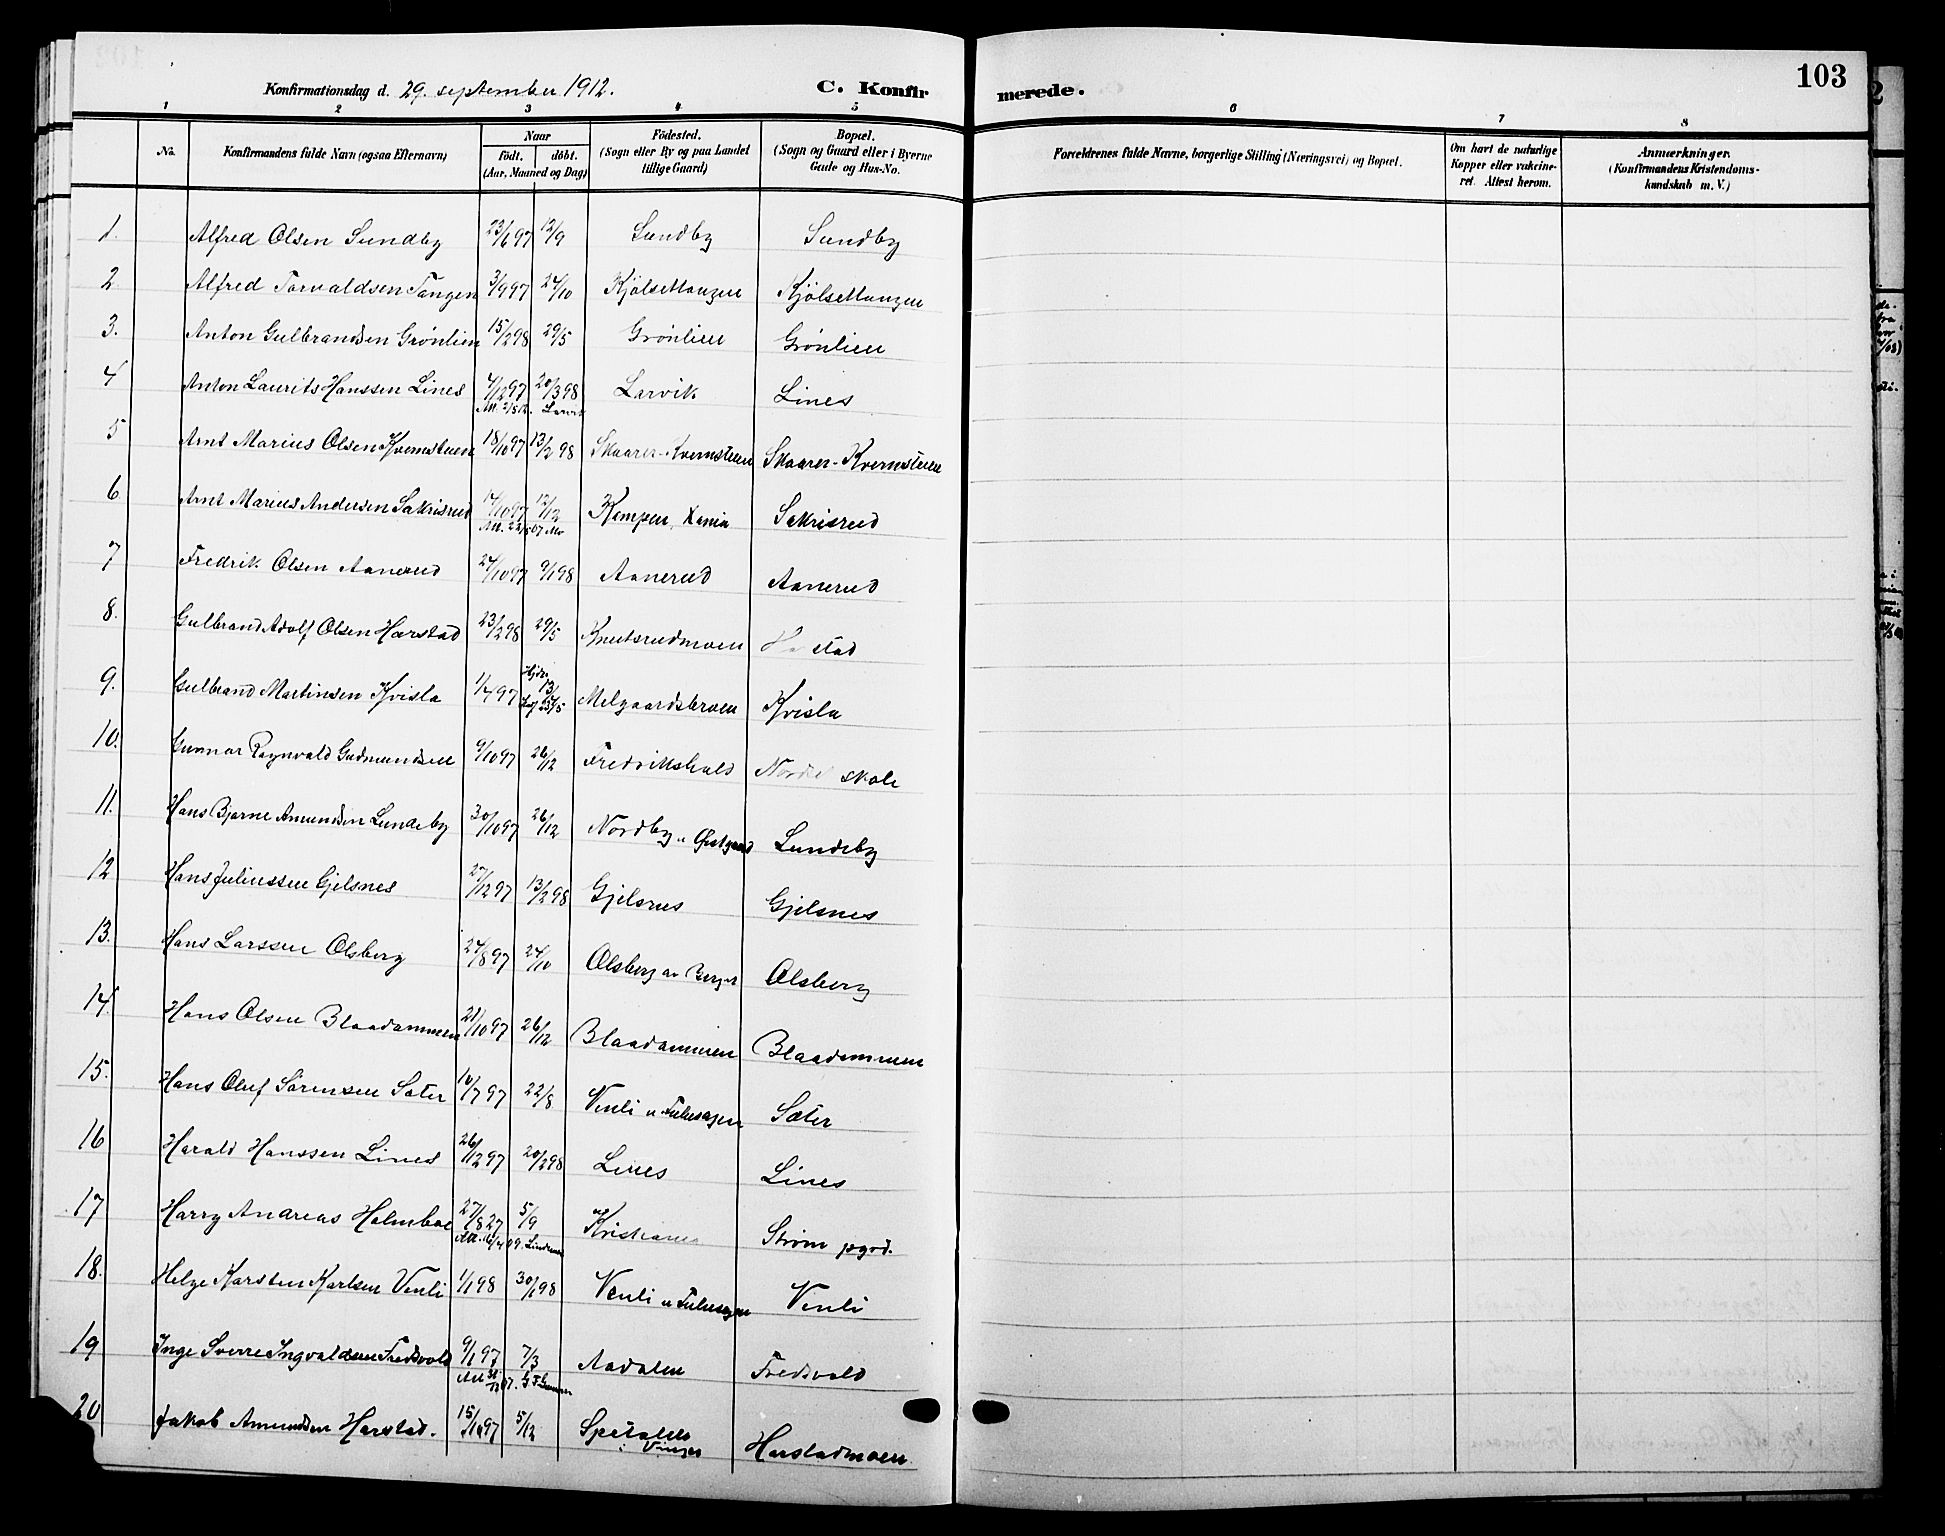 103
Konfirmationsdag d. 29. september 1912.
C. Konfirmerede.
1 2 3 4 5 6 7 8
No.
Konfirmandens fulde Navn (ogsaa Efternavn)
Naar
födt. döbt.
(Aar, Maaned og Dag)
Födested.
(Sogn eller By og paa Landet
tillige Gaard)
Bopæl.
(Sogn og Gaard eller i Byerne
Gade og Hus-No.
Forældrenes fulde Navne, borgerlige Stilling (Næringsvei) og Bopæl.
Om havt de naturlige
Kopper eller vakcine-
ret. Attest herom.
Anmærkninger.
(Konfirmandens Kristendoms-
kundskab m. V.)
1 Alfred Olsen Sundby 23/6 97 12/9 Sundby Sundby
2 Alfred Torvaldsen Tangen 3/9 97 24/10 Kjölsettangen Kjölsettangen
3. Anton Gulbrandsen Grönlien 15/2 98 29/5 Grönlien Grönlien
4 Anton Laurits Hanssen Lines 4/12 97 20/3 98 Larvik Lines
Att. 2/5 12. Larvik
5 Arnt Marius Olsen Kvernstuen 18/10 97 13/2 98 Skaarer-Kvernstuen Skaarer-Kvernstuen
6 Arnt Marius Andersen Sakrisrud 17/10 97 12/12 Kampen, Xania Sakrisrud
7 Fredrik Olsen Aanerud 24/10 97 9/1 98 Aanerud Aanerud
8. Gulbrand Adolf Olsen Harstad 23/2 98 29/5 Knutsrudmoen Harstad
9. Gulbrand Martinsen Kvisla 1/4 97 Melgaardsbraen Kvisla
10. Gunnar Ragnvald Gudmundsen 9/10 97 26/12 Fredrikshald skole
11. Hans Bjarne Amundsen Lundeby 30/10 97 26/12 Nordby u Østgaard Lundeby
12 Hans Juliussen Gjelsnes 27/12 97 13/2 98 Gjelsnes Gjelsnes
13. Hans Larssen Olsberg 24/8 97 24/10 Olsberg av Berger Olsberg
14. Hans Olsen Blaadammen 21/10 97 26/12 Blaadammen Blaadammen
15. Hans Oluf Sörensen Sæter 10/7 97 22/8 Venli u Fulusagen Sæter
16 Harald Hanssen Lines 26/12 97 20/2 98 Lines Lines
17 Harry Andreas Holmboe 27/8 27 5/9 Kristiania Ström pgrd.
18. Helge Karsten Karlsen Venli 1/1 98 30/1 98 Venli u Fulusagen Venli
19 Inge Sverre Ingvaldsen Fredsvold 9/1 97 7/3 Aadalen Fredsvold
20 Jakob Amundsen Harstad. 15/10 97 5/12 Spetalen Harstadmoen
i Vinger